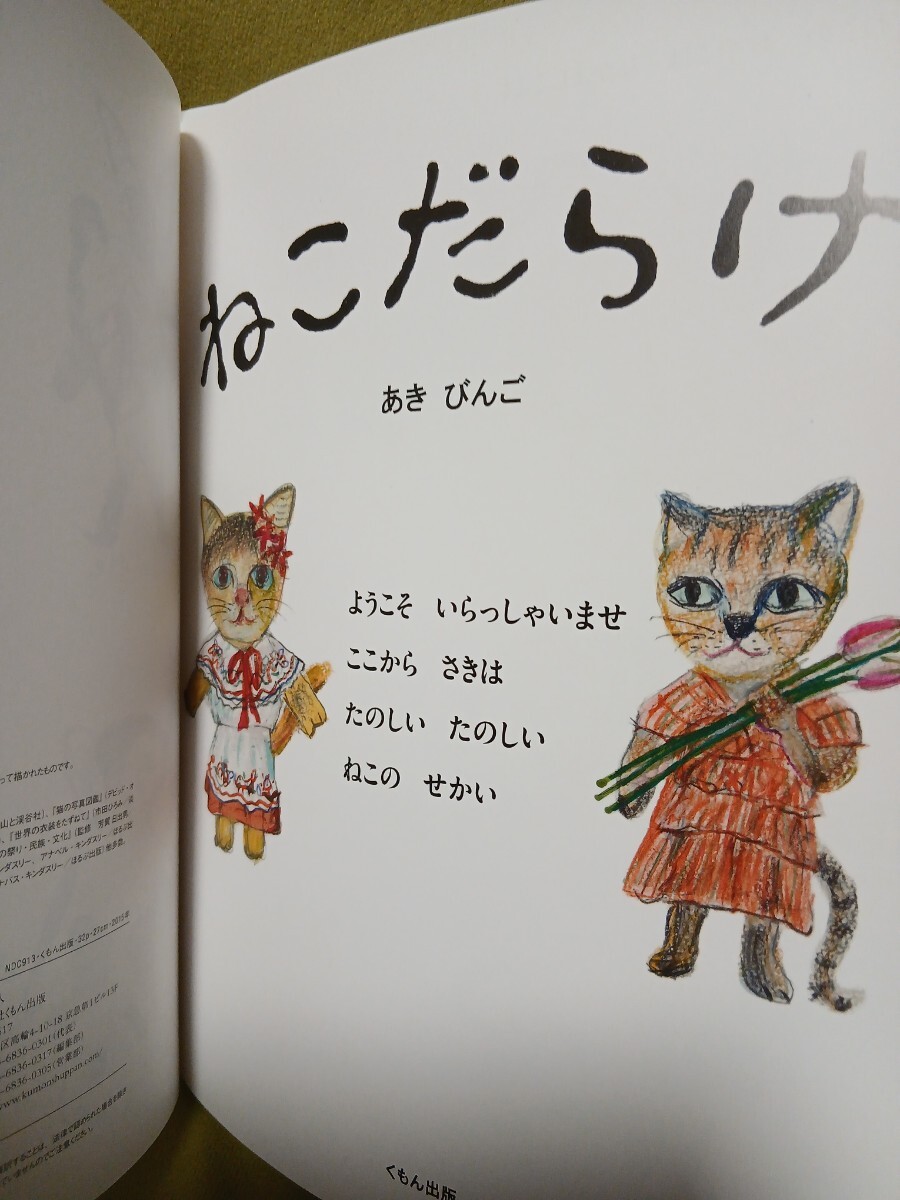 ねこだらけ
あき びんご
ようこそ いらっしゃいませ
ここから さきは
たのしい たのしい
ねこの せかい
くもん出版
って描かれたものです。
山と渓谷社)、『猫の写真図鑑』(デビッド・オ
『世界の衣装をたずねて』(市田ひろみ/淡
の祭り・民族・文化』(監修 芳賀日出男、
ンダスリー、アナベル・キンダスリー/ほるぷ出
ナバス・キンダスリー/ほるぷ出版)他多数。
NDC913・くもん出版・32p・27cm・2015年
社くもん出版
617
区高輪4-10-18 京急第1ビル13F
-6836-0301(代表)
-6836-0317(編集部)
-6836-0305(営業部)
www.kumonshuppan.com/
製することは、法律で認められた場合を除き
ていませんのでご注意ください。